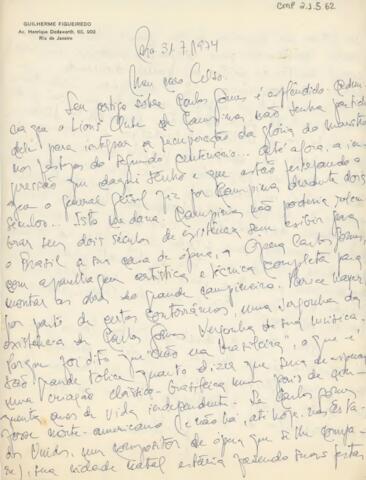 CMP 2.1.5.62
GUILHERME FIGUEIREDO
Av. Henrique Dodsworth, 63, 902
Rio de Janeiro
Rio 31.7.1974
Meu caro Celso.
Seu artigo sôbre Carlos Gomes é esplêndido.
que o Lions Clube de Campinas não tenha partido
dele para integrar a recuperação da glória do maestro
nos festejos do segundo centenário... Até agora, a im-
pressão que daqui tenho é que estão
que o general Geisel fez por Campinas durante dois
séculos... Isto
brar seus dois séculos de existência sem exibir para
o Brasil a sua casa de ópera, a Ópera Carlos Gomes,
com aparelhagem artística e técnica completa para
montar as obras do grande campineiro.
por parte de certos conterrâneos, uma vergonha da
existência de Carlos Gomes. Vergonha de sua música
porque foi dito que "não na brasileira", o que é
tão grande tolice quanto dizer que
uma criação clássico-brasileira num país de
quenta anos de vida independente. Se Carlos Gomes
fosse norte-americano (e não há, até hoje, nos Esta-
dos Unidos, um compositor de ópera que se lhe compa-
re), sua cidade natal estaria fazendo suas festas